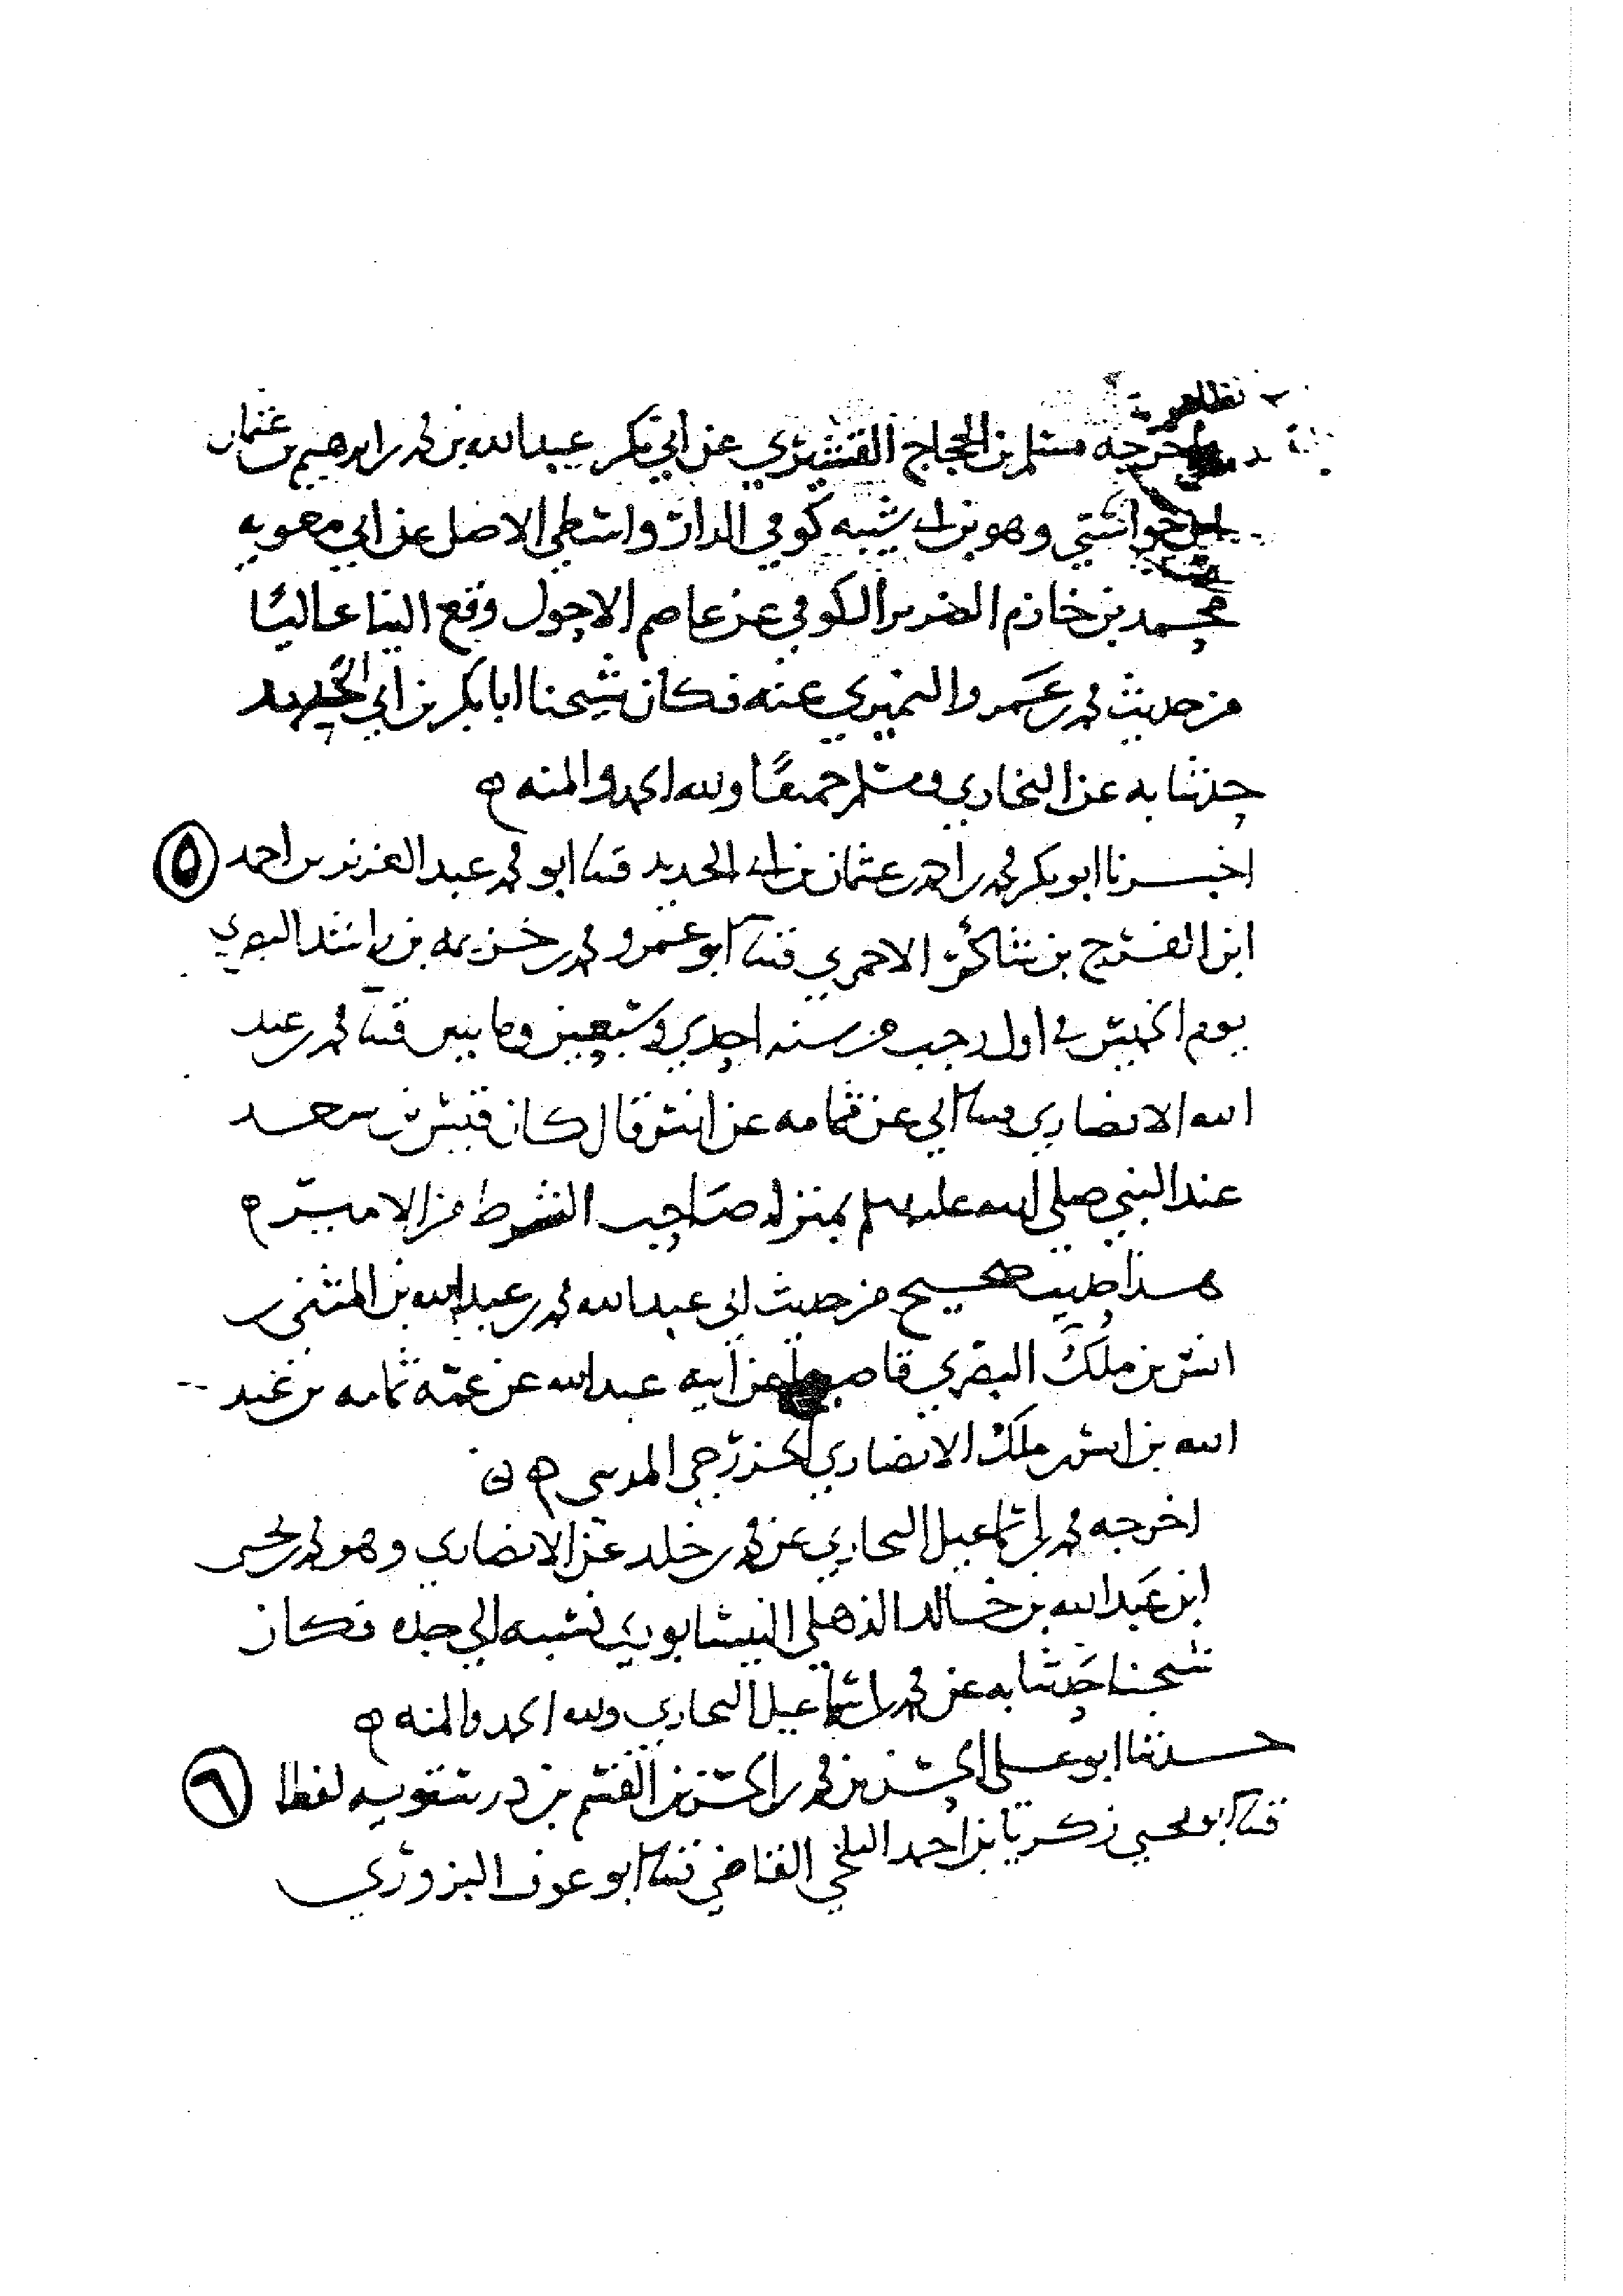 واخرجه مسلم بن الحجاج القشيري عن ابي بكر عبد الله بن محمد بن ابرهيم بن عثمان
خواستي وهو بن ابي شيبه كوفي الدار واسطي الاصل عن ابي معويه
محمد بن خازم الضرير الكوفي عن عاصم الاحول وقع الينا عاليًا
من حديث محمد بن عمرو النميري عنه فكان شيخنا ابا بكر بن ابي الحديد
حدثنا به عن البخاري ومسلم جميعًا ولله الحمد والمنه ه
اخبرنا ابو بكر محمد بن احمد بن عثمان بن ابي الحديد قثنا ابو محمد عبد العزيز بن احمد ٥
ابن الفرج بن شاكر الاحمري قثنا ابو عمرو محمد بن خزيمه بن راشد البصري
يوم الخميس في اول رجب من سنه احدي وسبعين ومايتين قثنا محمد بن عبد
الله الانصاري قثنا ابي عن ثمامه عن انس قال كان قيس بن سعد
عند النبي صلى الله عليه وسلم بمنزله صاحب الشرط من الامير ه
هذا حديث صحيح من حديث ابي عبد الله محمد بن عبد الله بن المثنى بن
انس بن ملك البصري قاضيها عن ابيه عبد الله عن عمه ثمامه بن عبد
الله بن انس بن ملك الانصاري الخزرجي المدني ه
اخرجه محمد بن اسماعيل البخاري عن محمد بن خلد عن الانصاري وهو محمد بن يحيى
ابن عبد الله بن خالد الذهلي النيسابوري نسبه الي جده فكان
شيخنا حدثنا به عن محمد بن اسماعيل البخاري ولله الحمد والمنه ه
حدثنا ابو علي الحسن بن محمد بن الحسن بن القسم بن درستويه لفظا ٦
قثنا ابو يحيي زكريا بن احمد البلخي القاضي قثنا ابو عوف البزوري